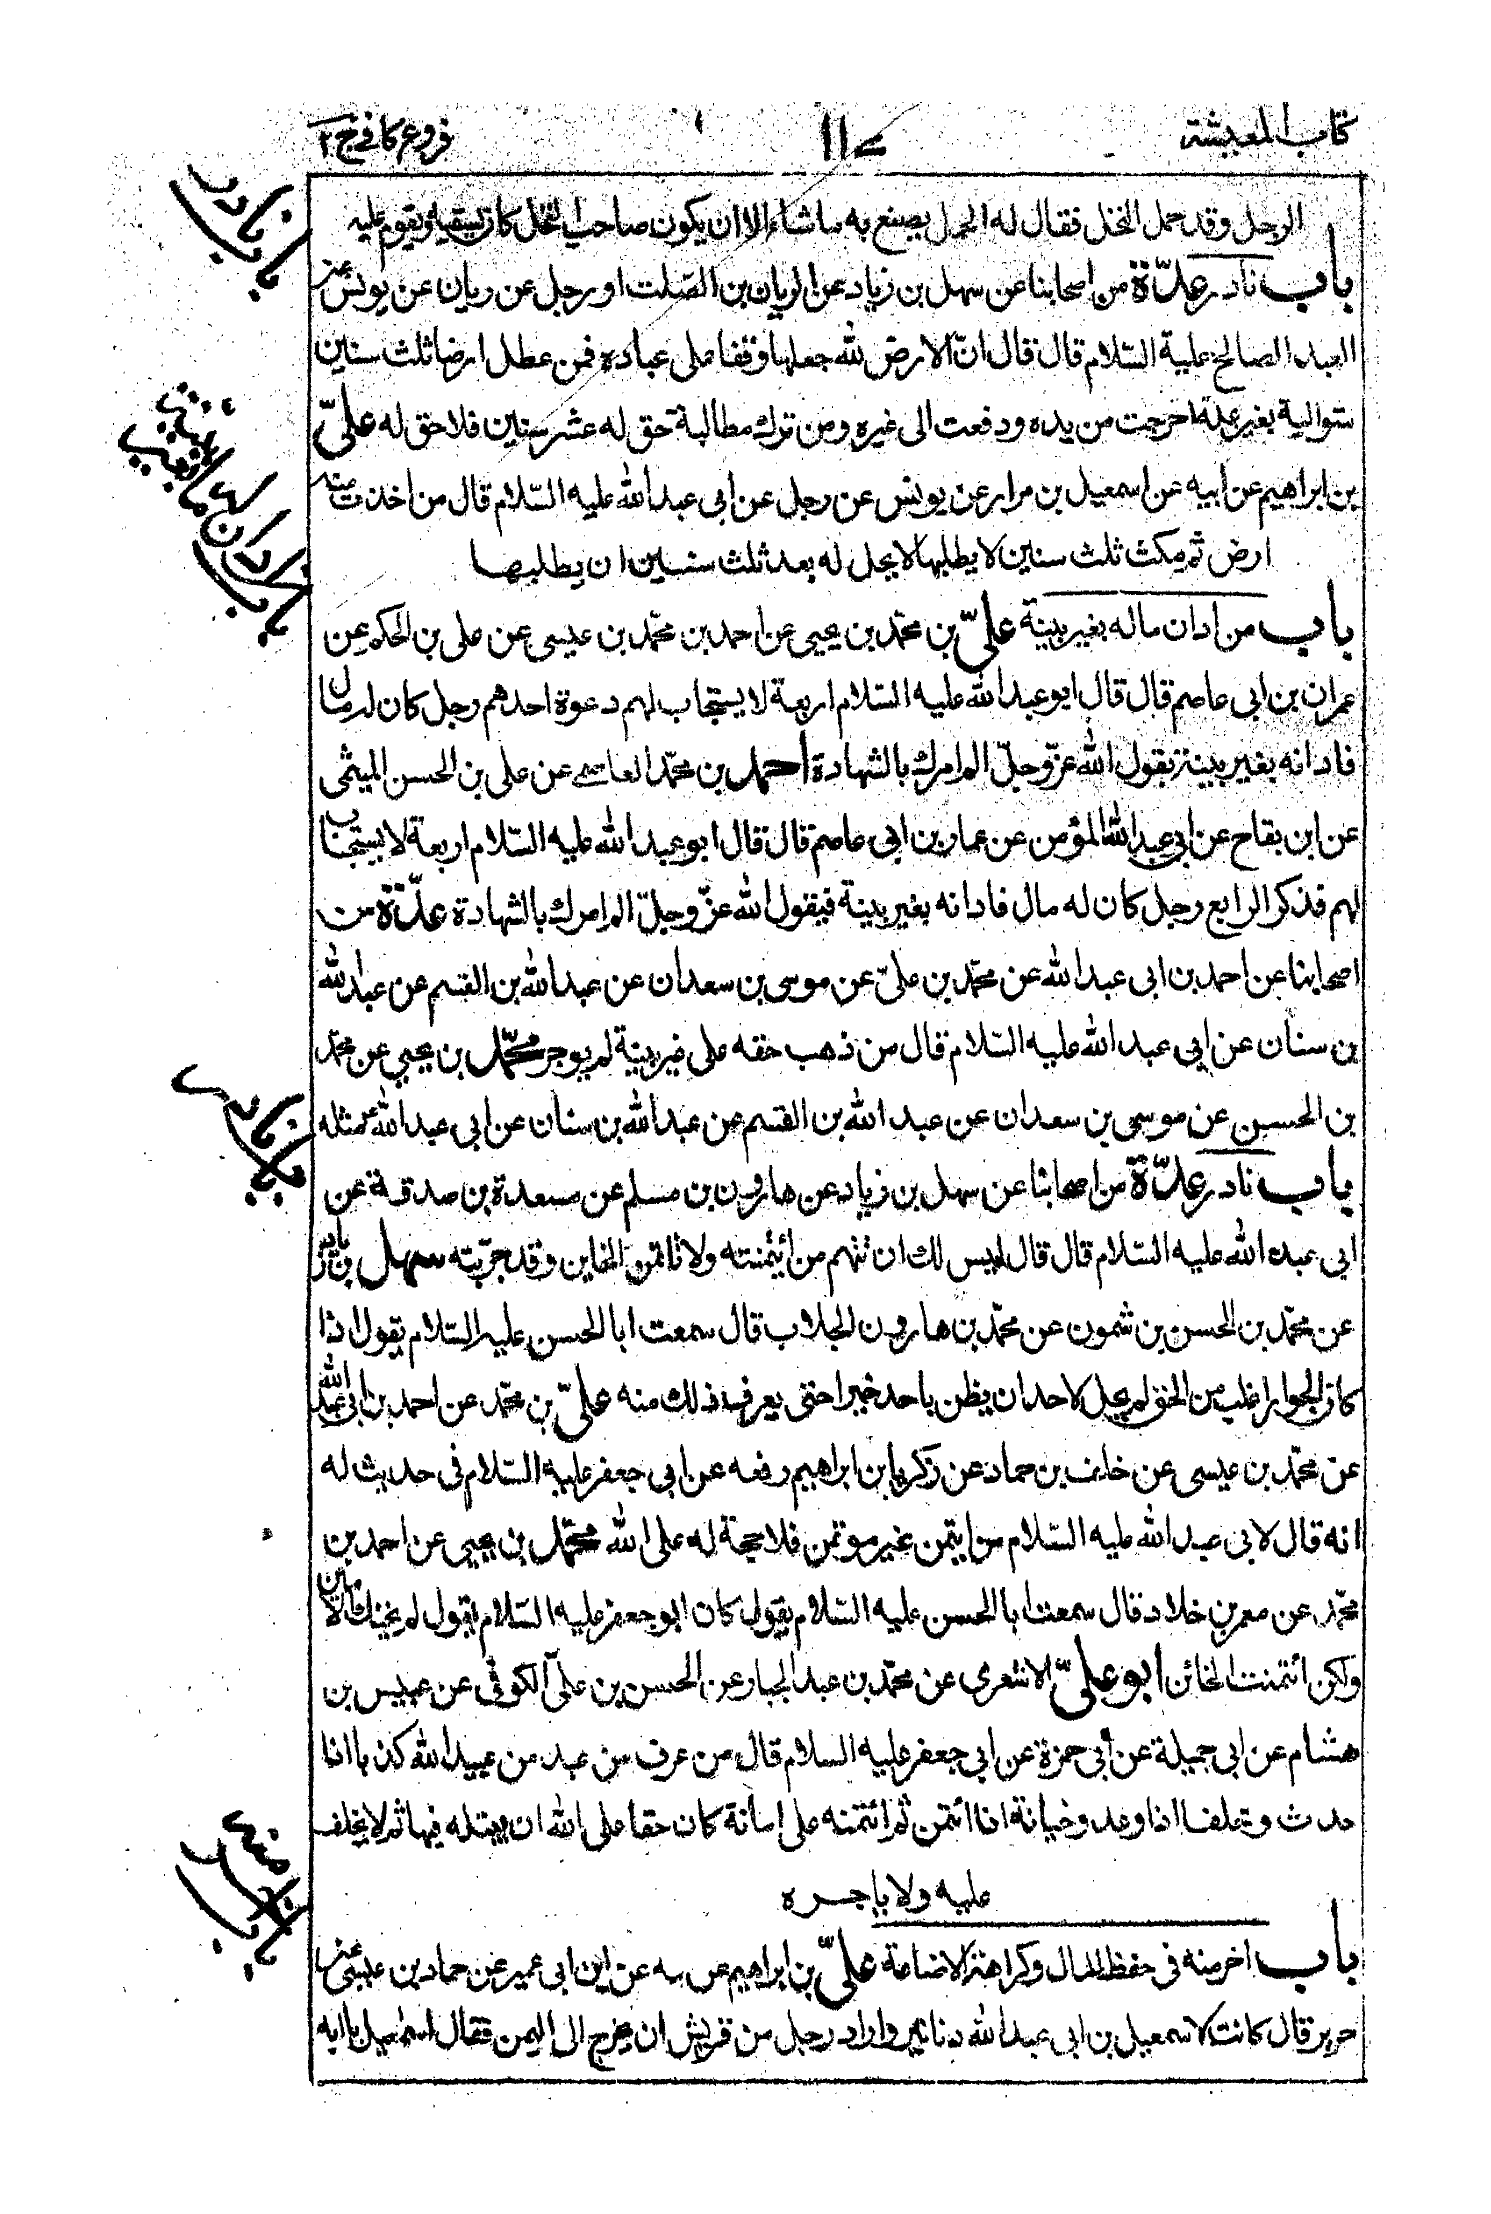 كتاب المعيشة
فروع كافي ج ٢
الرجل وقد حمل النخل فقال له الحمل يصنع به ما شاء الا ان يكون صاحب النخل كان يسقيه ويقوم عليه
باب نادر عدّة من اصحابنا عن سهل بن زياد عن الريان بن الصّلت او رجل عن ريان عن يونس عن
العبد الصالح عليه السّلام قال قال انّ الارض لله جعلها وقفا على عباده فمن عطل ارضا ثلث سنين
متوالية بغير علة اخرجت من يده ودفعت الى غيره ومن ترك مطالبة حق له عشر سنين فلا حق له عليّ
بن ابراهيم عن أبيه عن اسمعيل بن مرار عن يونس عن رجل عن ابي عبد الله عليه السّلام قال من اخذت منه
ارض ثم مكث ثلث سنين لا يطلبها لا يحل له بعد ثلث سنين ان يطلبها
باب من ادان ماله بغير بينة عليّ بن محمّد بن يحيى عن احمد بن محمّد بن عيسى عن على بن الحكم عن
عمران بن ابى عاصم قال قال ابو عبد الله عليه السّلام اربعة لا يستجاب لهم دعوة احدهم رجل كان له مال
فادانه بغير بينة يقول الله عزّ وجلّ الم امرك بالشهادة احمد بن محمّد العاصمى عن على بن الحسن الميثمى
عن ابن بقاح عن ابي عبد الله المؤمن عن عمار بن ابى عاصم قال قال ابو عبد الله عليه السّلام اربعة لا يستجاب
لهم فذكر الرابع رجل كان له مال فادانه بغير بينة فيقول الله عزّ وجلّ الم امرك بالشهادة عدّة من
اصحابنا عن احمد بن ابى عبد الله عن محمّد بن علىّ عن موسى بن سعدان عن عبد الله بن القسم عن عبد الله
بن سنان عن ابى عبد الله عليه السّلام قال من ذهب حقه على غير بينة لم يوجر محمّد بن يحيى عن محمّد
بن الحسين عن موسى بن سعدان عن عبد الله بن القسم عن عبد الله بن سنان عن ابى عبد الله ع مثله
باب نادر عدّة من اصحابنا عن سهل بن زياد عن هارون بن مسلم عن مسعدة بن صدقة عن
ابى عبد الله عليه السّلام قال قال ليس لك ان تتهم من ائتمنته ولا تاتمن الخاين وقد جرّبته سهل بن زياد
عن محمّد بن الحسن بن شمون عن محمّد بن هارون الجلاب قال سمعت ابا الحسن عليه السّلام يقول اذا
كان الجور اغلب من الحق لم يحل لاحد ان يظن باحد خيرا حتى يعرف ذلك منه عليّ بن محمّد عن احمد بن ابى عبد الله
عن محمّد بن عيسى عن خلف بن حماد عن زكريا بن ابراهيم رفعه عن ابى جعفر عليه السّلام فى حديث له
انه قال لابى عبد الله عليه السّلام من ايتمن غير موتمن فلا حجة له على الله محمّد بن يحيى عن احمد بن
محمّد عن معمر بن خلاد قال سمعت ابا الحسن عليه السّلام يقول كان ابو جعفر عليه السّلام يقول لم يخنك الامين
ولكن ائتمنت الخائن ابو علىّ الاشعرى عن محمّد بن عبد الجبار عن الحسن بن علىّ الكوفى عن عبيس بن
هشام عن ابى جميلة عن أبى حمزة عن ابى جعفر عليه السلام قال من عرف من عبد من عبيد الله كذبا اذا
حدث وخلفا اذا وعد وخيانة اذا ائتمن ثم ائتمنه على امانة كان حقا على الله ان يبتليه فيها ثم لا يخلف
عليه ولا ياجره
باب اخر منه فى حفظ المال وكراهة الاضاعة عليّ بن ابراهيم عن ابيه عن ابن ابى عمير عن حماد بن عيسى عن
حريز قال كانت لاسمعيل بن ابى عبد الله دنانير واراد رجل من قريش ان يخرج الى اليمن فقال اسمعيل يا ابه
باب نادر
باب من ادان ماله بغير بينة
باب نادر
باب اخر منه